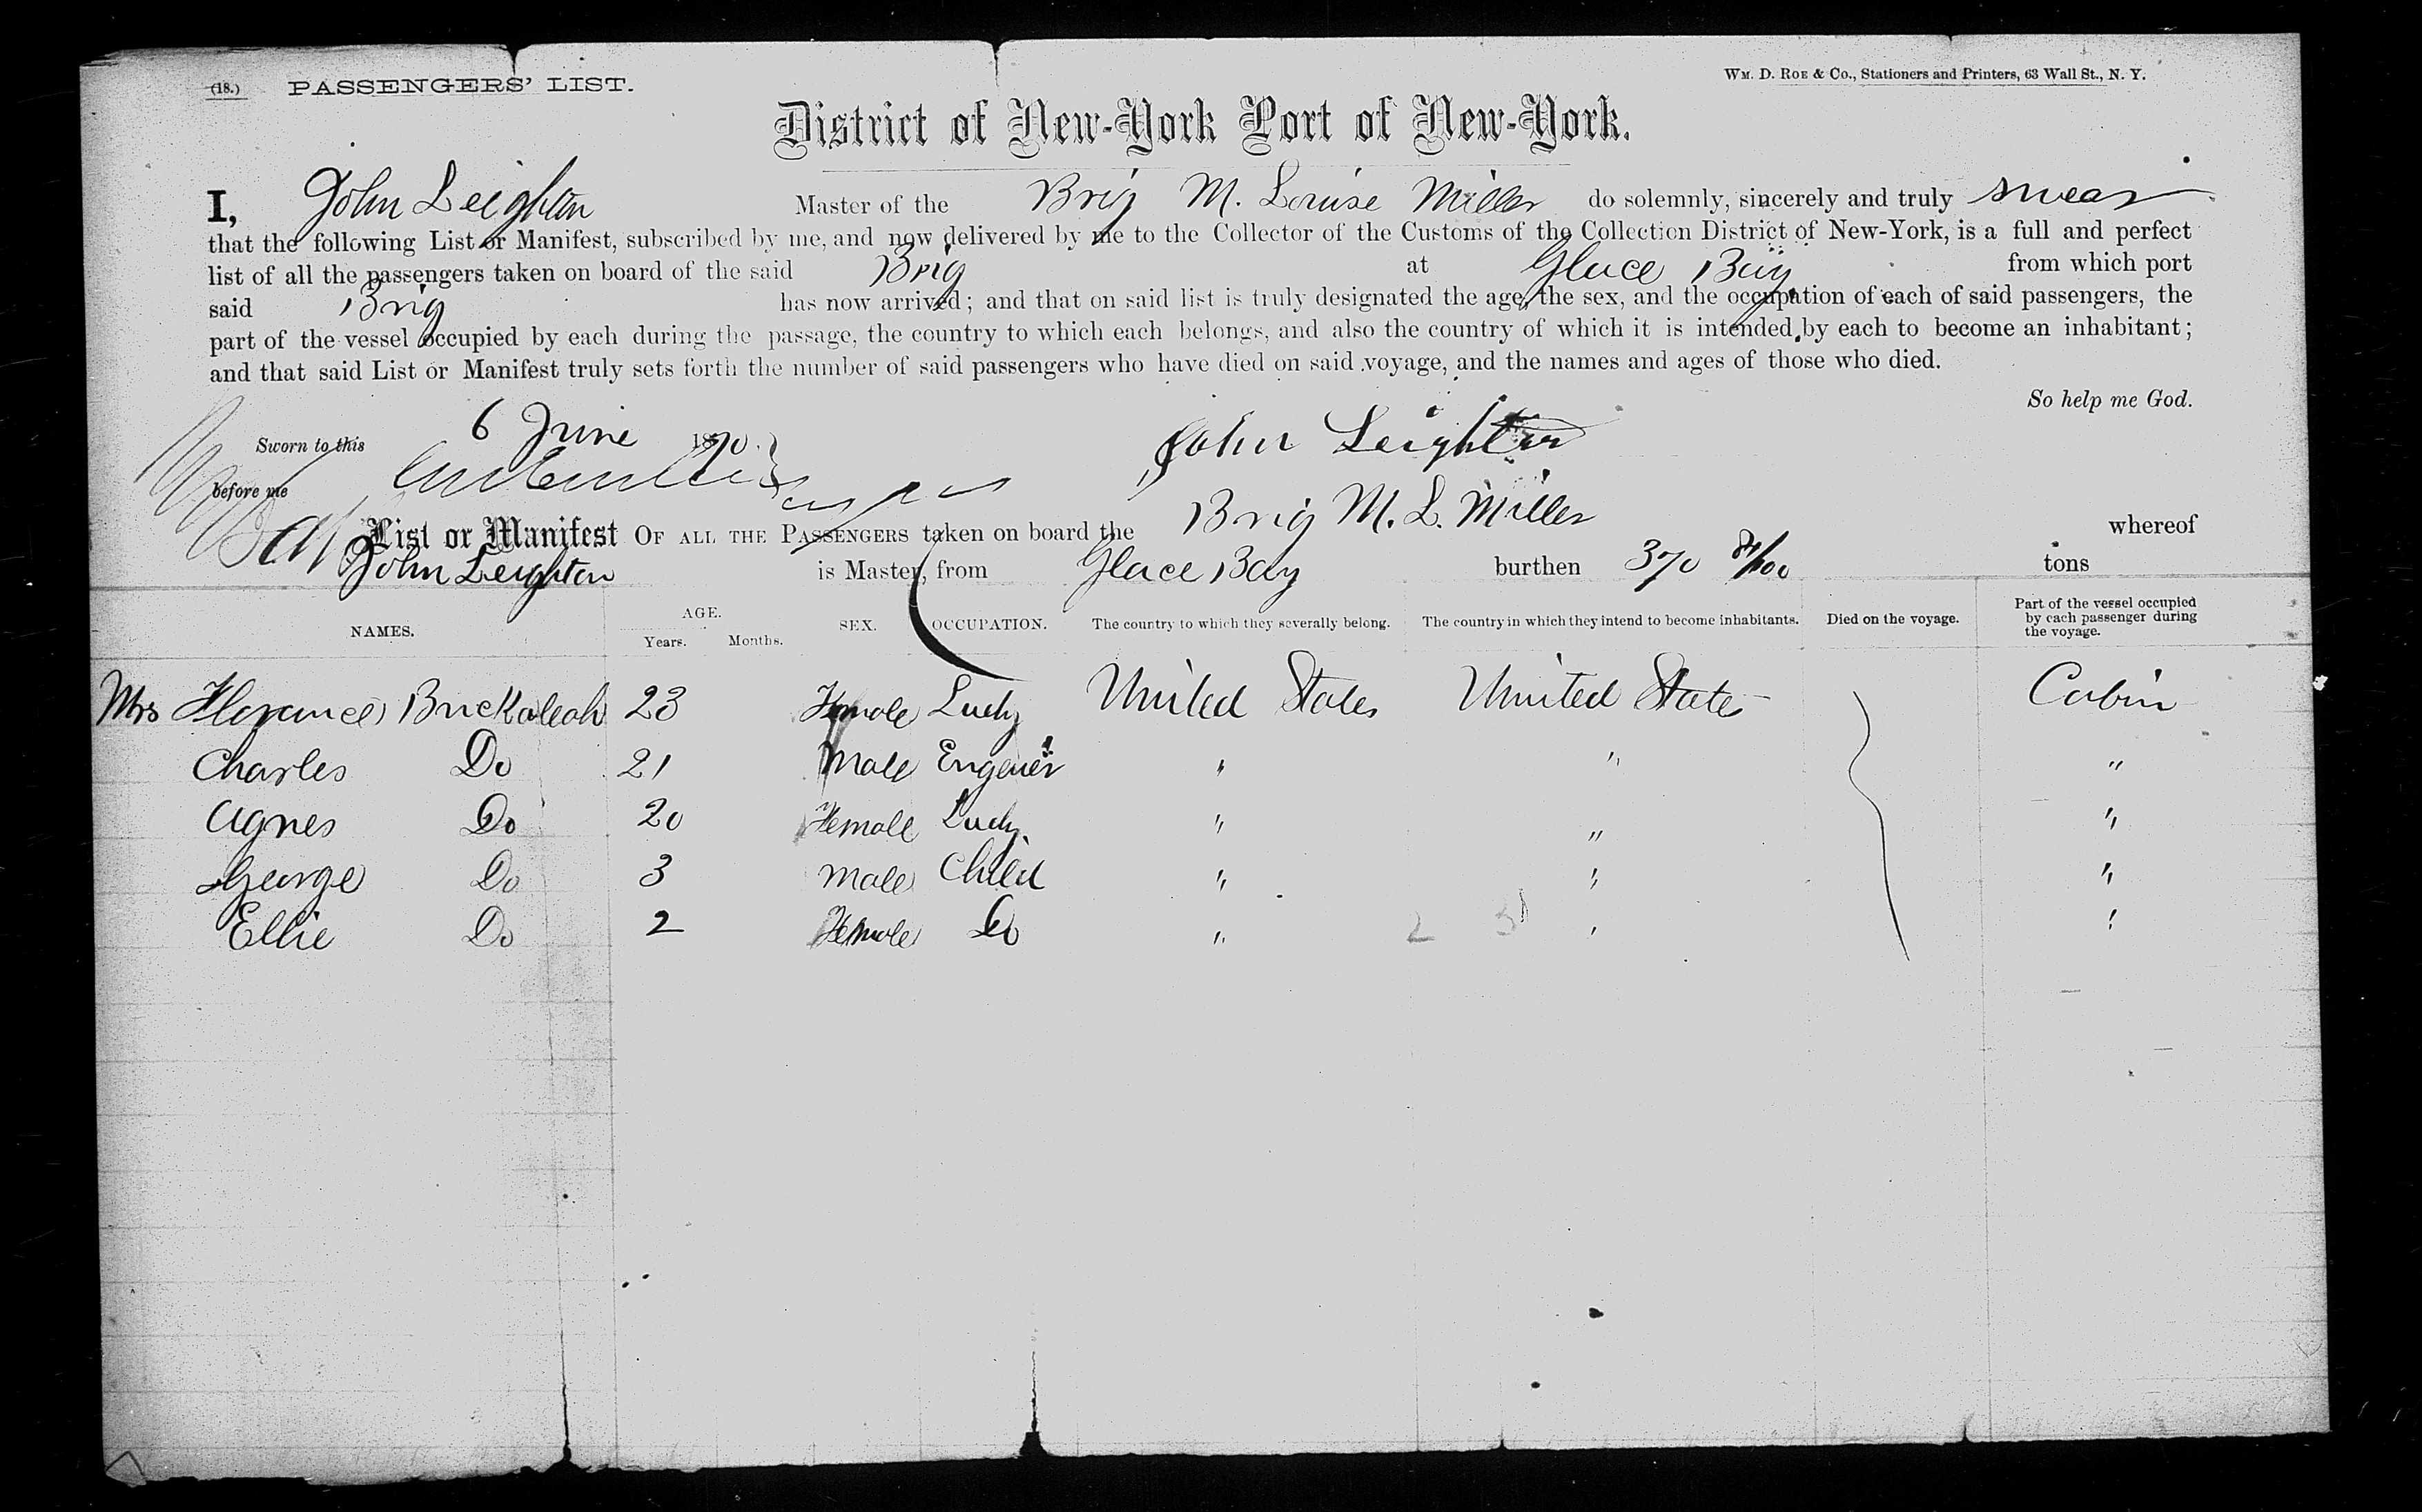 (18.) PASSENGERS' LIST. WM. D. ROE & CO., Stationers and Printers, 63 Wall St., N. Y.
District of New-York Port of New-York.
I, John Leighton Master of the Brig M. Louise Miller do solemnly, sincerely and truly swear
that the following List or Manifest, subscribed by me, and now delivered by me to the Collector of the Customs of the Collection District of New-York, is a full and perfect
list of all the passengers taken on board of the said Brig at Glace Bay from which port
said Brig has now arrived; and that on said list is truly designated the age, the sex, and the occupation of each of said passengers, the
part of the vessel occupied by each during the passage, the country to which each belongs, and also the country of which it is intended by each to become an inhabitant;
and that said List or Manifest truly sets forth the number of said passengers who have died on said voyage, and the names and ages of those who died.
So help me God.
Sworn to this 6 June 1870. John Leighton
before me
List or Manifest OF ALL THE PASSENGERS taken on board the Brig M. L. Miller whereof
John Leighton is Master, from Glace Bay burthen 370 /100 tons
NAMES. AGE. Years. Months. SEX. OCCUPATION. The country to which they severally belong. The country in which they intend to become inhabitants. Died on the voyage. Part of the vessel occupied by each passenger during the voyage.
Mrs Florance 23 Female Lady United States United States Cabin
Charles Do 21 Male Engeneir " " "
Agnes Do 20 Female Lady " " "
George Do 3 Male Child " " "
Ellie Do 2 Female Do " " "